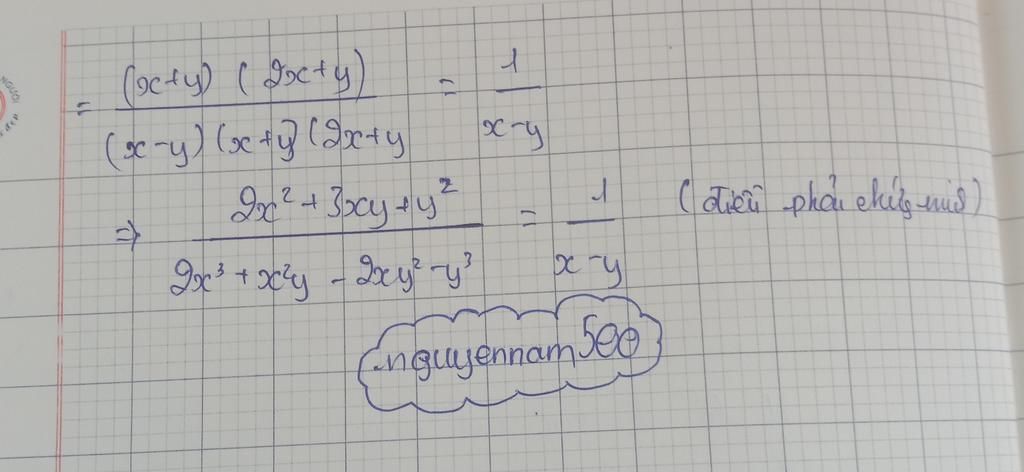 = (x+y) (2x+y) / (x-y) (x+y) (2x+y = 1 / x-y
=> 2x² + 3xy + y² / 2x³ + x²y - 2xy² - y³ = 1 / x-y (điều phải chứng minh)
nguyennam500